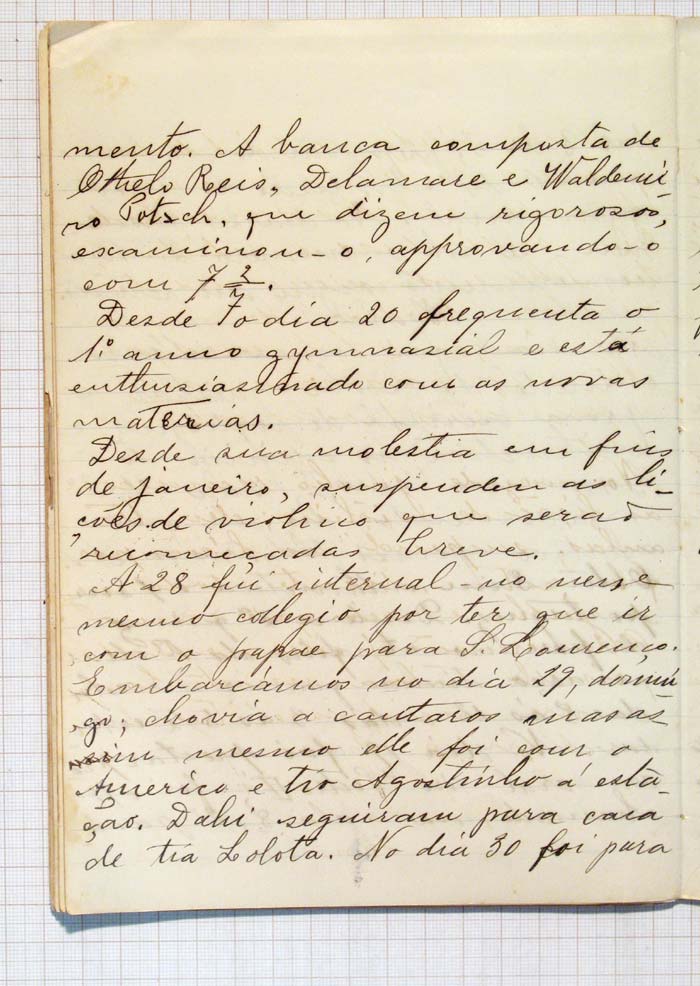 mento. A banca composta de
Othelo Reis, Delamare e Waldemi-
ro Potsch, que dizem rigorosos,
examinou-o, approvando-o
com 7 2/7.
Desde o dia 20 frequenta o
1º anno gymnasial e está
enthusiasmado com as novas
materias.
Desde sua molestia em fins
de janeiro, suspendeu as li-
ções de violino que serão
recomeçadas breve.
A 28 fui internal-no nesse
mesmo collegio por ter que ir
com o papae para S. Lourenço.
Embarcámos no dia 29, domin
go; chovia a cantaros mas as
sim mesmo elle foi com o
Americo e tio Agostinho á esta-
ção. Dahi seguiram para casa
de tia Lolota. No dia 30 foi para